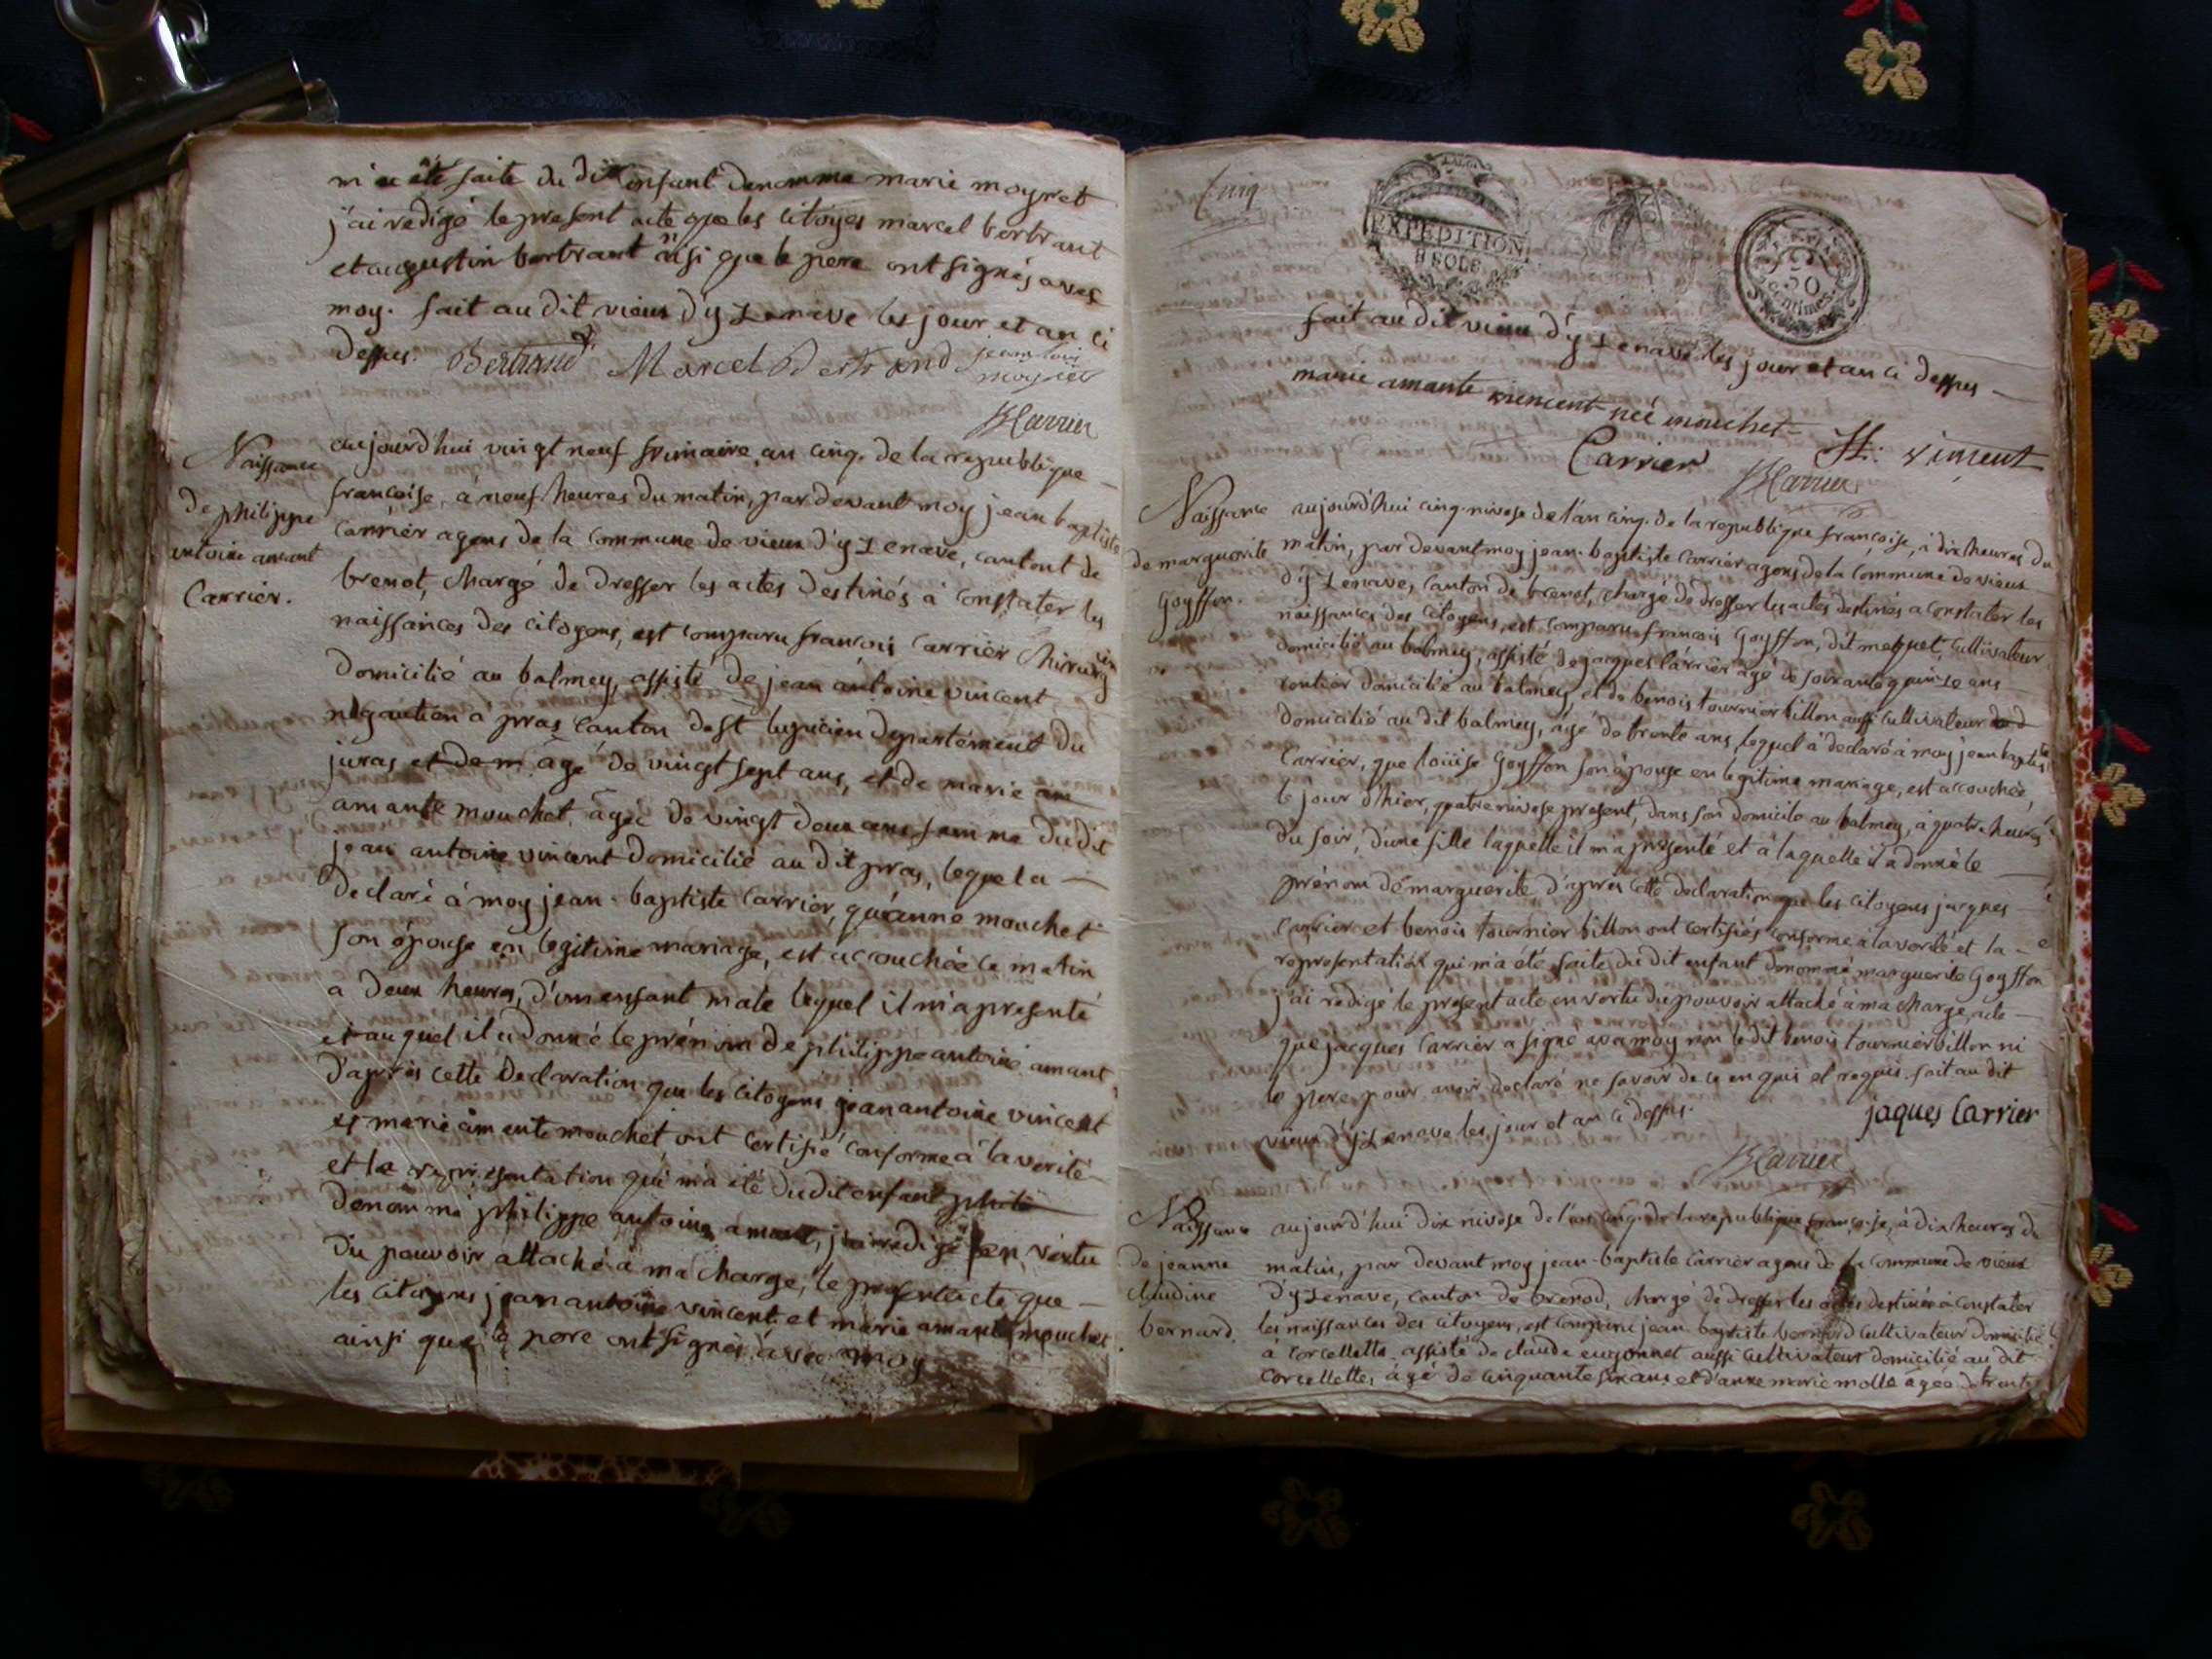 m'a été faite du dit enfant denommé marie moyret
j'ai redigé le present acte que les citoyes marcel bertrant
et augustin bertrant insi que le pere ont signés avec
moy. fait au dit vieux d'yzenave les jour et an ci
dessus. Bertrand Marcel Bertrand jean loui
moyret
JBCarrier
Naissance
de philippe
antoine amant
Carrier.
aujourd'hui vingt neuf frimaire, an cinq. de la republique
francoise, à neuf heures du matin, par devant moy jean baptiste
Carrier agens de la commune de vieux d'yzenave, cantont de
brenot, chargé de dresser les actes destinés à constater les
naissances des citoyens, est comparu francois Carrier chirurgien
domicilié au balmey, assisté de jean antoine vincent
négautien a pras canton de st lupicien departement du
juras et de m âgé de vingt sept ans, et de marie am
amante mouchet, âgée de vingt deux ans femme du dit
jean antoine vincent domicilié au dit pras, lequel a
declaré à moy jean-baptiste Carrier, qu'anne mouchet
son épouse en legitime mariage, est accouchée ce matin
a deux heures, d'un enfant male lequel il m'a presenté
et auquel il a donné le prénom de philippe antoine amant
d'après cette declaration que les citoyens jean antoine vincent
et marie amante mouchet ont certifié conforme à la verité
et la representation qui m'a été du dit enfant phili
denommé philippe antoine amant, j'ai redigé en vertu
du pouvoir attaché à ma charge, le present acte que
les citoyens jean antoine vincent et marie amante mouchet
ainsi que le pere ont signés avec moy
Cinq
EXPEDITION
8 SOLS
50
centimes
fait au dit vieux d'yzenave les jour et an ci dessus
marie amante vincent née mouchet
Carrier
vincent
JBCarrier
Naissance
de marguerite
Goyffon.
aujourd'hui cinq nivose de l'an cinq. de la republique françoise, à dix heures du
matin, par devant moy jean-baptiste Carrier agens de la commune de vieux
d'yzenave, canton de brenot, chargé de dresser les actes destinés a constater les
naissances des citoyens, est comparu francois Goyffon, dit maquet, cultivateur
domicilié au balmey, assisté de jacques Carrier agé de soixante quinze ans
rentier domicilié au balmey, et de benois tournier billon aussi cultivateur
domicilié au dit balmey, âgé de trente ans, lequel à declaré à moy jean baptiste
Carrier, que louise Goyffon son épouse en legitime mariage, est accouchée,
le jour d'hier, quatre nivose present, dans son domicile au balmey, à quatre heures
du soir, d'une fille laquelle il m'a presenté et à laquelle il a donné le
prénom de marguerite d'apres cette declaration que les citoyens jacques
Carrier et benois tournier billon ont certifiés conforme à la verité et la
representation qui m'a été faite du dit enfant denommé marguerite Goyffon
j'ai redigé le present acte en vertu du pouvoir attaché à ma charge, acte
que jacques Carrier a signé avec moy non le dit benois tournier billon ni
le pere pour avoir declaré ne savoir de ce enquis et requis. fait au dit
vieux d'yzenave les jour et an ci dessus.
jaques Carrier
JBCarrier
Naissance
de jeanne
claudine
bernard
aujourd'hui dix nivose de l'an cinq. de la republique françoise, à dix heures du
matin, par devant moy jean-baptiste Carrier agens de la commune de vieux
d'yzenave, canton de brenod, chargé de dresser les actes destinés à constater
les naissances des citoyens, est comparu jean-baptiste bernard cultivateur domicilié
à corcellette assisté de claude aussi cultivateur domicilié au dit
corcellettes, âgé de cinquante six ans, et d'anne marie molle agée de trente